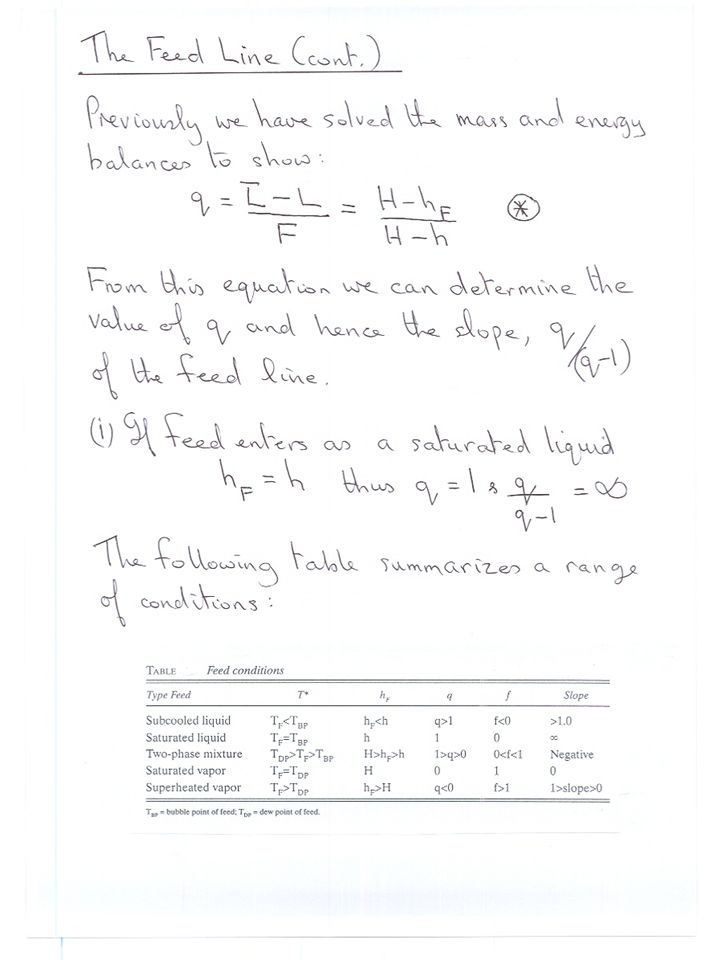 The Feed Line (cont.)
Previously we have solved the mass and energy
balances to show:
q = L̅ - L / F = H - h_F / H - h ⊛
From this equation we can determine the
value of q and hence the slope, q/(q-1)
of the feed line.
(i) If feed enters as a saturated liquid
h_F = h thus q = 1 & q/q-1 = ∞
The following table summarizes a range
of conditions:
TABLE Feed conditions
Type Feed T* h_F q f Slope
Subcooled liquid T_F<T_BP h_F<h q>1 f<0 >1.0
Saturated liquid T_F=T_BP h 1 0 ∞
Two-phase mixture T_DP>T_F>T_BP H>h_F>h 1>q>0 0<f<1 Negative
Saturated vapor T_F=T_DP H 0 1 0
Superheated vapor T_F>T_DP h_F>H q<0 f>1 1>slope>0
T_BP = bubble point of feed; T_DP = dew point of feed.